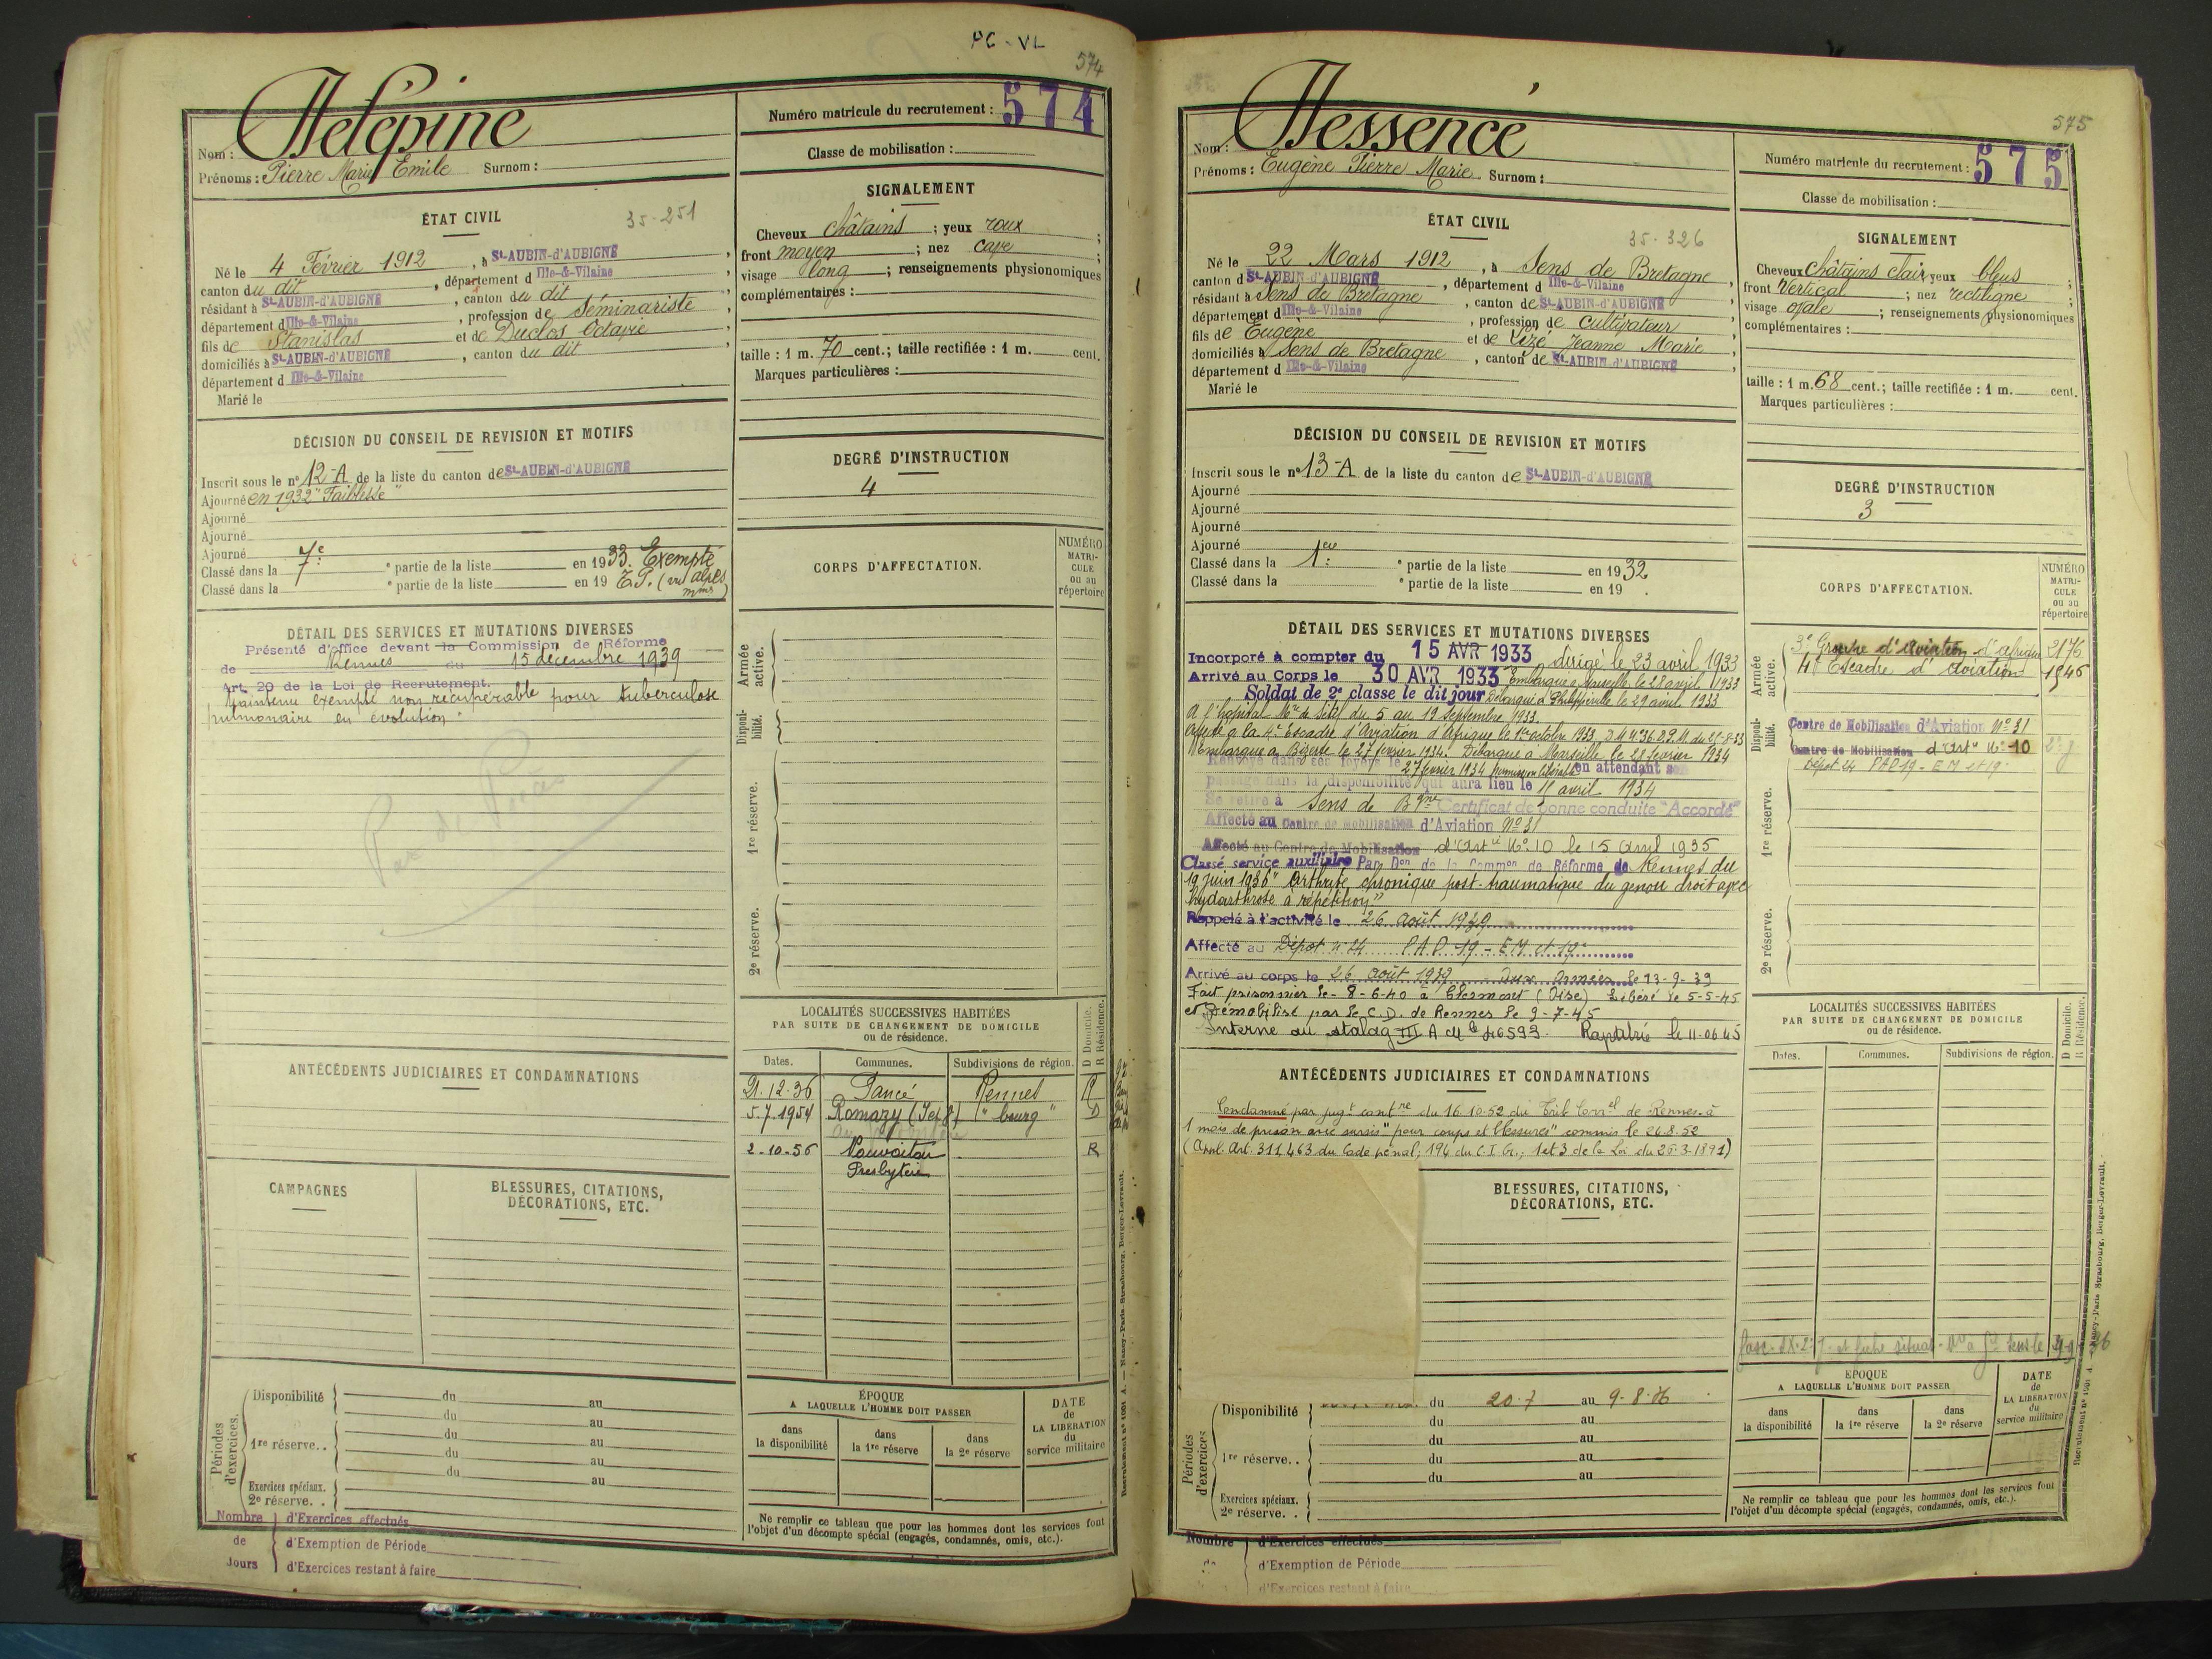 PC - VL
574
Numéro matricule du recrutement : 574
Nom : Helépine
Prénoms : Pierre Marie Emile Surnom :
Classe de mobilisation :
ÉTAT CIVIL
35-251
Né le 4 Février 1912, à St-AUBIN-d'AUBIGNÉ
canton du dit, département d Ille-&-Vilaine
résidant à St-AUBIN-d'AUBIGNÉ, canton du dit
département d Ille-&-Vilaine, profession de Séminariste
fils de Stanislas et de Duclos Octavie
domiciliés à St-AUBIN-d'AUBIGNÉ, canton du dit
département d Ille-&-Vilaine
Marié le
SIGNALEMENT
Cheveux châtains ; yeux roux ;
front moyen ; nez cave ;
visage long ; renseignements physionomiques
complémentaires :
taille : 1 m. 70 cent.; taille rectifiée : 1 m. cent.
Marques particulières :
DÉCISION DU CONSEIL DE REVISION ET MOTIFS
Inscrit sous le n° 12-A de la liste du canton de St-AUBIN-d'AUBIGNÉ
Ajourné en 1932 "Faiblesse"
Ajourné
Ajourné
Ajourné
Classé dans la 7e ° partie de la liste en 1933. Exempté
Classé dans la ° partie de la liste en 19
DEGRÉ D'INSTRUCTION
4
CORPS D'AFFECTATION.
NUMÉRO MATRI-CULE ou au répertoire
Armée active.
Disponi-bilité.
1re réserve.
2e réserve.
DÉTAIL DES SERVICES ET MUTATIONS DIVERSES
Présenté d'office devant la Commission de Réforme
de Rennes du 15 décembre 1939
Art. 20 de la Loi de Recrutement.
Maintenu exempté non récupérable pour tuberculose
pulmonaire en évolution.
Pas de
ANTÉCÉDENTS JUDICIAIRES ET CONDAMNATIONS
LOCALITÉS SUCCESSIVES HABITÉES
PAR SUITE DE CHANGEMENT DE DOMICILE
ou de résidence.
D Domicile.
R Résidence.
Dates. Communes. Subdivisions de région.
21.12.36 Pancé Rennes R
5.7.1954 Romazy ("bourg" D
2-10-56 Nouvoitou R
Presbytère
CAMPAGNES
BLESSURES, CITATIONS,
DÉCORATIONS, ETC.
Périodes d'exercices.
Disponibilité du au
du au
1re réserve.. du au
du au
du au
Exercices spéciaux.
2e réserve. .
Nombre de Jours
d'Exercices effectués
d'Exemption de Période
d'Exercices restant à faire
ÉPOQUE
A LAQUELLE L'HOMME DOIT PASSER
dans la disponibilité
dans la 1re réserve
dans la 2e réserve
DATE de LA LIBÉRATION du service militaire
Ne remplir ce tableau que pour les hommes dont les services font
l'objet d'un décompte spécial (engagés, condamnés, omis, etc.).
575
Numéro matricule du recrutement : 575
Nom : Hessence
Prénoms : Eugène Pierre Marie Surnom :
Classe de mobilisation :
ÉTAT CIVIL
35-326
Né le 22 Mars 1912, à Sens de Bretagne,
canton d St-AUBIN-d'AUBIGNÉ, département d Ille-&-Vilaine
résidant à Sens de Bretagne, canton de St-AUBIN-d'AUBIGNÉ
département d Ille-&-Vilaine, profession de cultivateur
fils de Eugène et de Lizé Jeanne Marie
domiciliés à Sens de Bretagne, canton de St-AUBIN-d'AUBIGNÉ
département d Ille-&-Vilaine
Marié le
SIGNALEMENT
Cheveux châtains clair yeux bleus ;
front vertical ; nez rectiligne ;
visage ovale ; renseignements physionomiques
complémentaires :
taille : 1 m. 68 cent.; taille rectifiée : 1 m. cent.
Marques particulières :
DÉCISION DU CONSEIL DE REVISION ET MOTIFS
Inscrit sous le n° 13-A de la liste du canton de St-AUBIN-d'AUBIGNÉ
Ajourné
Ajourné
Ajourné
Ajourné
Classé dans la 1ère ° partie de la liste en 1932
Classé dans la ° partie de la liste en 19 .
DEGRÉ D'INSTRUCTION
3
CORPS D'AFFECTATION.
NUMÉRO MATRI-CULE ou au répertoire
Armée active.
3e Groupe d'aviation d'afrique 2176
4e Escadre d'aviation 1946
Disponi-bilité.
Centre de Mobilisation d'Aviation N° 31
Centre de Mobilisation d'Artie N° 10
Dépôt 24 PAD 19 - EM et 19e
1re réserve.
2e réserve.
DÉTAIL DES SERVICES ET MUTATIONS DIVERSES
Incorporé à compter du 15 AVR 1933 dirigé le 23 avril 1933
Arrivé au Corps le 30 AVR 1933 Embarqué à Marseille le 28 avril 1933
Soldat de 2e classe le dit jour Débarqué à Philippeville le 29 avril 1933
A l'hôpital Mre de Sétif du 5 au 19 Septembre 1933.
Affecté à la 4e Escadre d'Aviation d'Afrique le 1er octobre 1933
Embarqué à Bizerte le 27 février 1934. Débarqué à Marseille le 28 février 1934
Renvoyé dans ses foyers le 27 février 1934 permission libérable en attendant son
passage dans la disponibilité qui aura lieu le 11 avril 1934
Se retire à Sens de Bgne Certificat de bonne conduite "Accordé"
Affecté au Centre de Mobilisation d'Aviation N° 31
Affecté au Centre de Mobilisation d'Artie N° 10 le 15 Avril 1935
Classé service auxiliaire Par Don de la Common de Réforme de Rennes du
19 juin 1936 "Arthrite chronique post-traumatique du genou droit avec
hydarthrose à répétition"
Rappelé à l'activité le 26 août 1939
Affecté au Dépôt n° 24 PAD 19 - EM et 19e
Arrivé au corps le 26 août 1939 Aux Armées le 13-9-39
Fait prisonnier le 8-6-40 à Clermont (Oise) Libéré le 5-5-45
et Démobilisé par le C.D. de Rennes le 9-7-45
Interné au stalag III A Mle 46593. Rapatrié le 11-06-45
ANTÉCÉDENTS JUDICIAIRES ET CONDAMNATIONS
Condamné par jugt contre du 16.10.52 du Trib Correl de Rennes à
1 mois de prison avec sursis "pour coups et blessures" commis le 24.8.52
(Appl. Art. 311, 463 du Code pénal; 194 du C.I. Cr.; 1 et 3 de la Loi du 26-3-1891)
BLESSURES, CITATIONS,
DÉCORATIONS, ETC.
LOCALITÉS SUCCESSIVES HABITÉES
PAR SUITE DE CHANGEMENT DE DOMICILE
ou de résidence.
D Domicile.
R Résidence.
Dates. Communes. Subdivisions de région.
Périodes d'exercices
Disponibilité du 20-7 au 9-8-36
du au
1re réserve.. du au
du au
du au
Exercices spéciaux.
2e réserve. .
Nombre
d'Exercices effectués
d'Exemption de Période
d'Exercices restant à faire
ÉPOQUE
A LAQUELLE L'HOMME DOIT PASSER
dans la disponibilité
dans la 1re réserve
dans la 2e réserve
DATE de LA LIBÉRATION du service militaire
Ne remplir ce tableau que pour les hommes dont les services font
l'objet d'un décompte spécial (engagés, condamnés, omis, etc.).